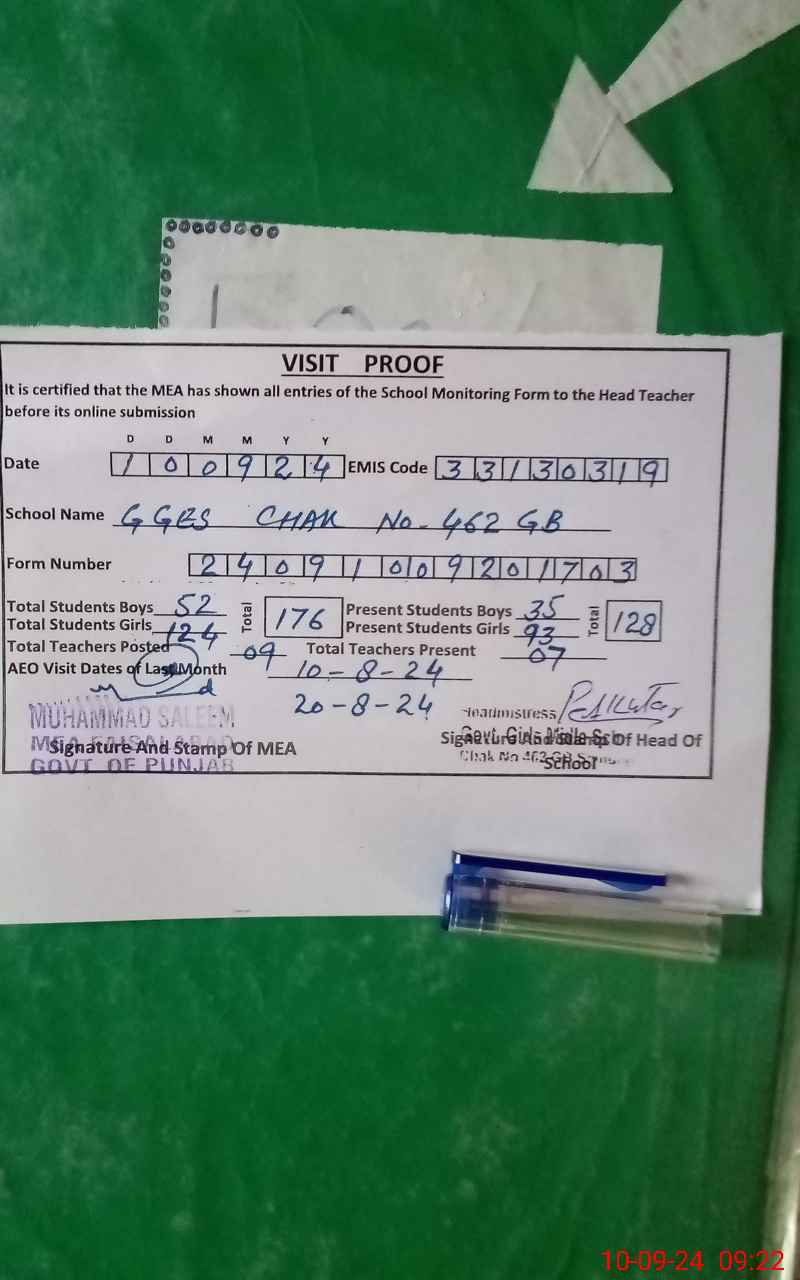 VISIT PROOF
It is certified that the MEA has shown all entries of the School Monitoring Form to the Head Teacher
before its online submission
D D M M Y Y
Date 1 0 0 9 2 4 EMIS Code 3 3 1 3 0 3 1 9
School Name GGES CHAK No- 462 GB
Form Number 2 4 0 9 1 0 0 9 2 0 1 7 0 3
Total Students Boys 52 Total 176 Present Students Boys 35 Total 128
Total Students Girls 124 Present Students Girls 93
Total Teachers Posted 09 Total Teachers Present 07
AEO Visit Dates of Last Month 10-8-24
20-8-24
MUHAMMAD SALEEM
MEA FAISALABAD
GOVT OF PUNJAB
Signature And Stamp Of MEA
Headmistress
Govt. Girls
Chak No 462 GB
Signature And Stamp Of Head Of
School
10-09-24 09:22